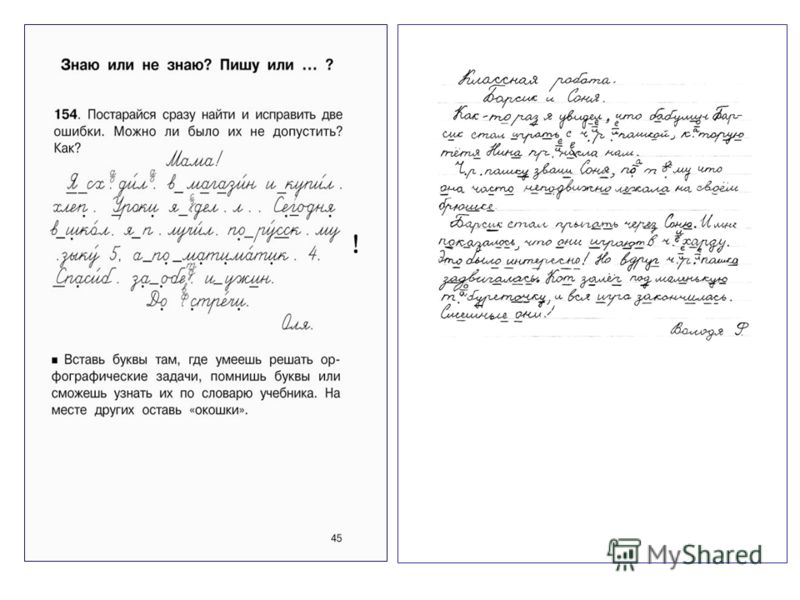 Знаю или не знаю? Пишу или ... ?
154. Постарайся сразу найти и исправить две
ошибки. Можно ли было их не допустить?
Как?
Мама!
Я сх.ди́л. в магази́н и купи́л.
хлеп. Уроки я .дел.л.. Сегодня
в шко́л. я п.лучи́л. по ру́сск.му
.зыку́ 5, а по матима́тик. 4.
Спаси́б. за обе. и ужин.
До .стре́чи.
Оля.
!
■ Вставь буквы там, где умеешь решать ор-
фографические задачи, помнишь буквы или
сможешь узнать их по словарю учебника. На
месте других оставь «окошки».
45
Классная работа.
Барсик и Соня.
Как-то раз я увидел, что бабушин Бар-
сик стал играть с ч.р.пашкой, к.торую
тётя Нина пр.н.сла нам.
Ч.р.пашку звали Соня, по т.му что
она часто неподвижно лежала на своём
брюшке.
Барсик стал прыгать через Соню. И мне
показалось, что они играют в ч.харду.
Это было интересно! Но вдруг ч.р.пашка
задвигалась. Кот залёг под маленькую
т.буреточку, и вся игра закончилась.
Смешные они!
Володя Р.
MyShared